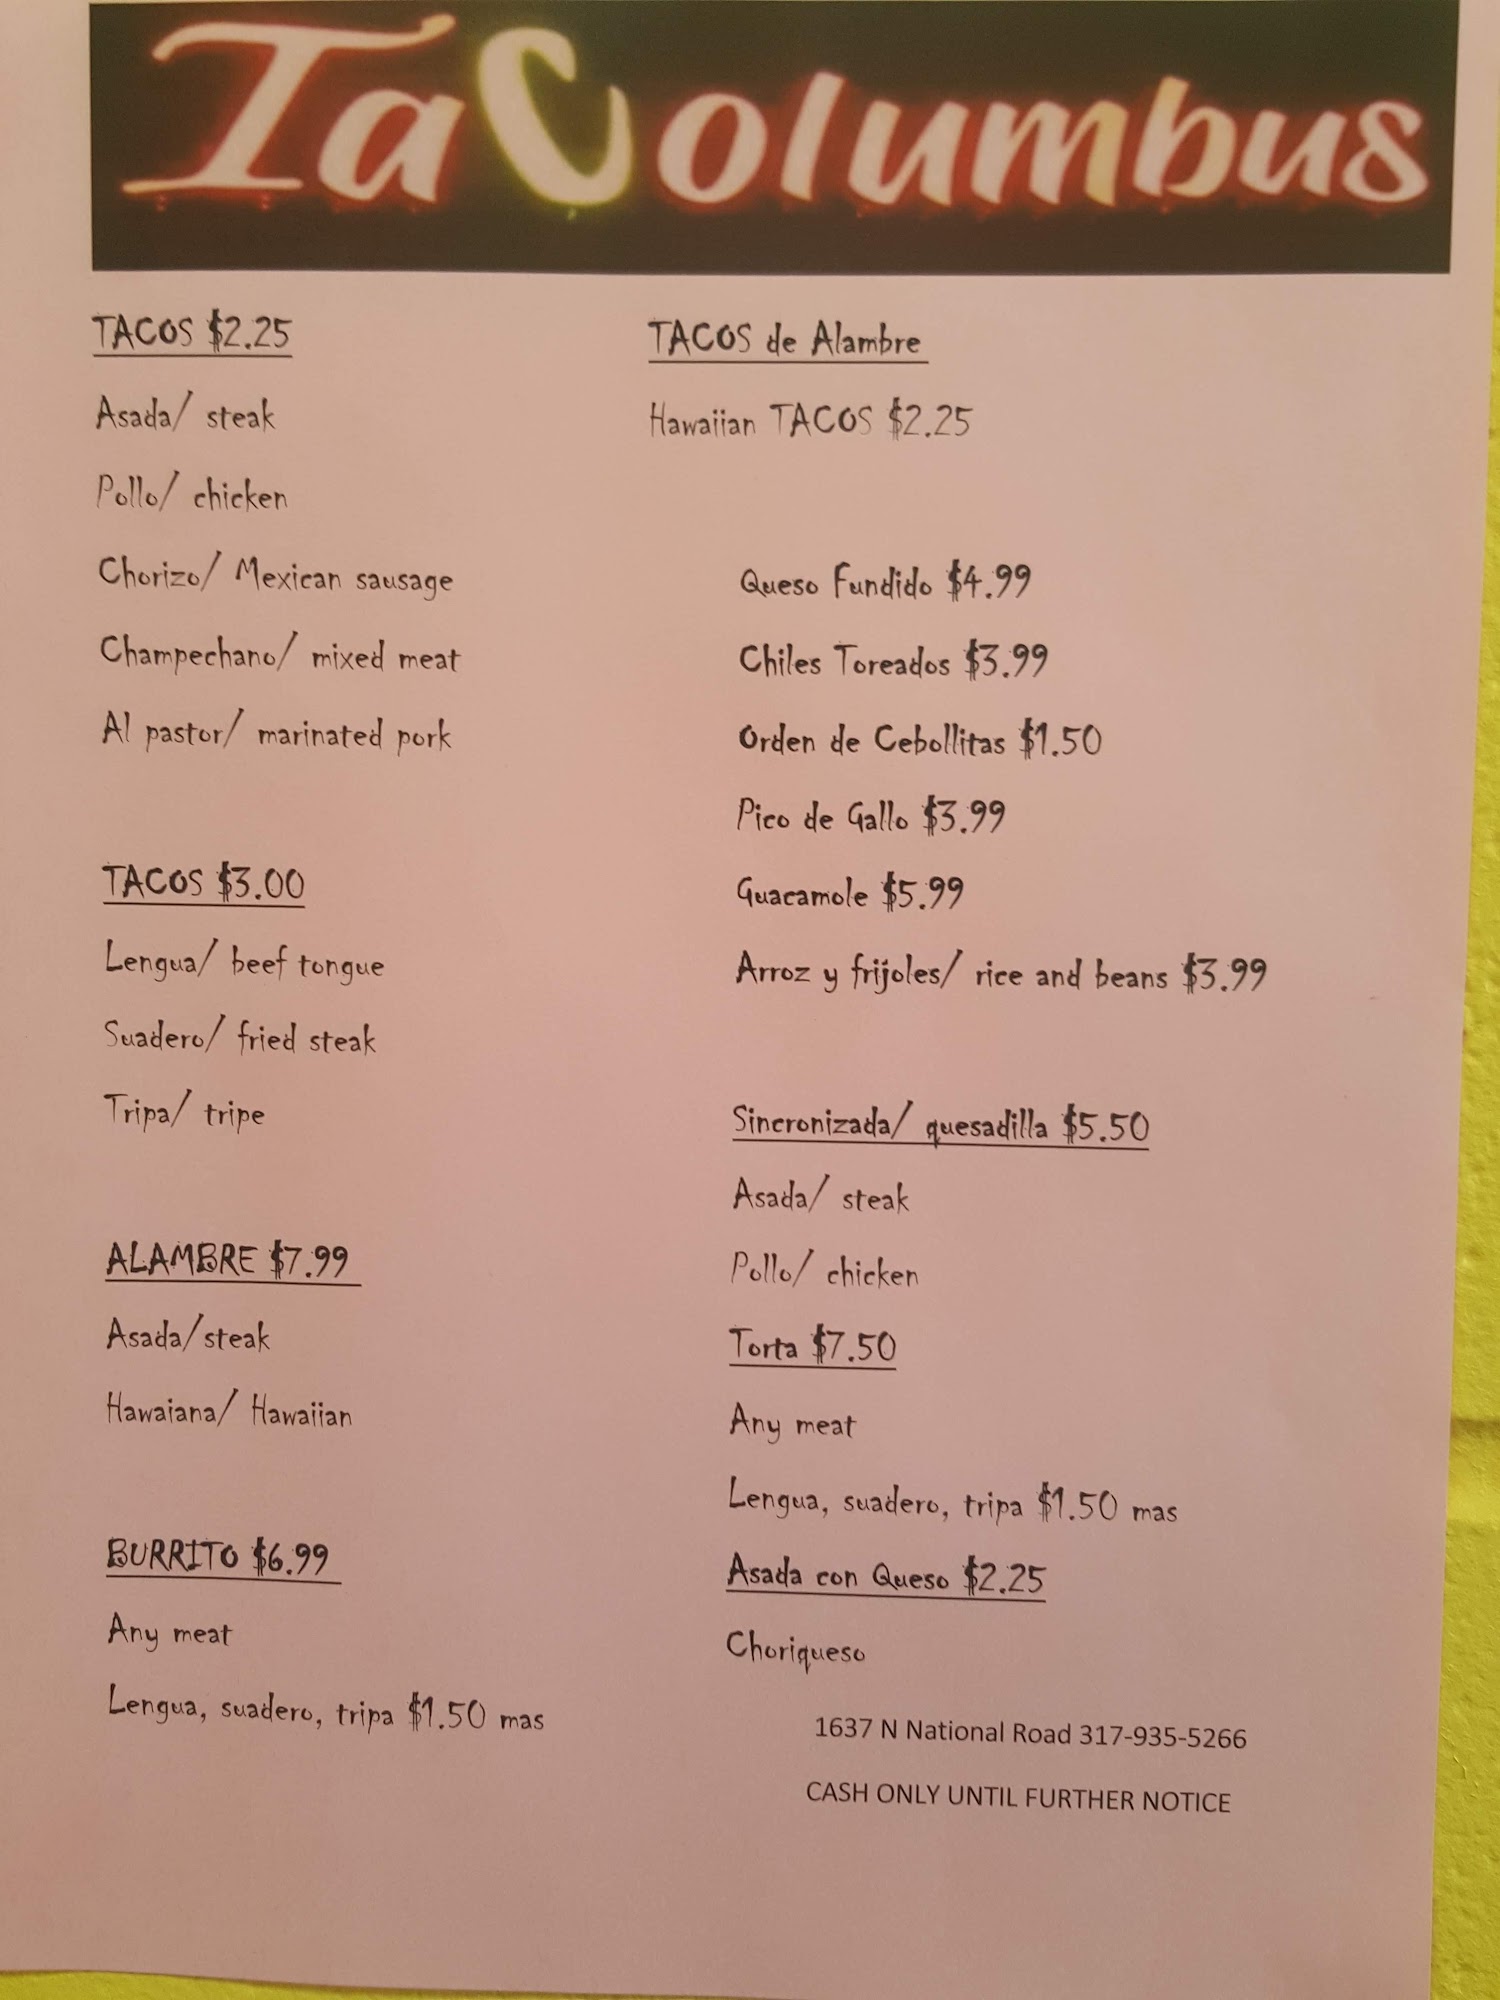 TaColumbus
TACOS $2.25
Asada/ steak
Pollo/ chicken
Chorizo/ Mexican sausage
Champechano/ mixed meat
Al pastor/ marinated pork
TACOS $3.00
Lengua/ beef tongue
Suadero/ fried steak
Tripa/ tripe
ALAMBRE $7.99
Asada/steak
Hawaiana/ Hawaiian
BURRITO $6.99
Any meat
Lengua, suadero, tripa $1.50 mas
TACOS de Alambre
Hawaiian TACOS $2.25
Queso Fundido $4.99
Chiles Toreados $3.99
Orden de Cebollitas $1.50
Pico de Gallo $3.99
Guacamole $5.99
Arroz y frijoles/ rice and beans $3.99
Sincronizada/ quesadilla $5.50
Asada/ steak
Pollo/ chicken
Torta $7.50
Any meat
Lengua, suadero, tripa $1.50 mas
Asada con Queso $2.25
Choriqueso
1637 N National Road 317-935-5266
CASH ONLY UNTIL FURTHER NOTICE